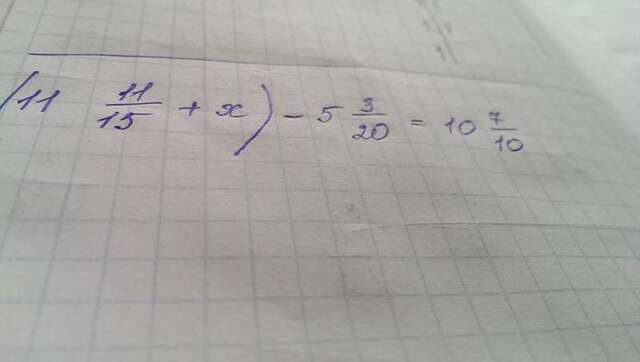 (11 11/15 + x) - 5 3/20 = 10 7/10